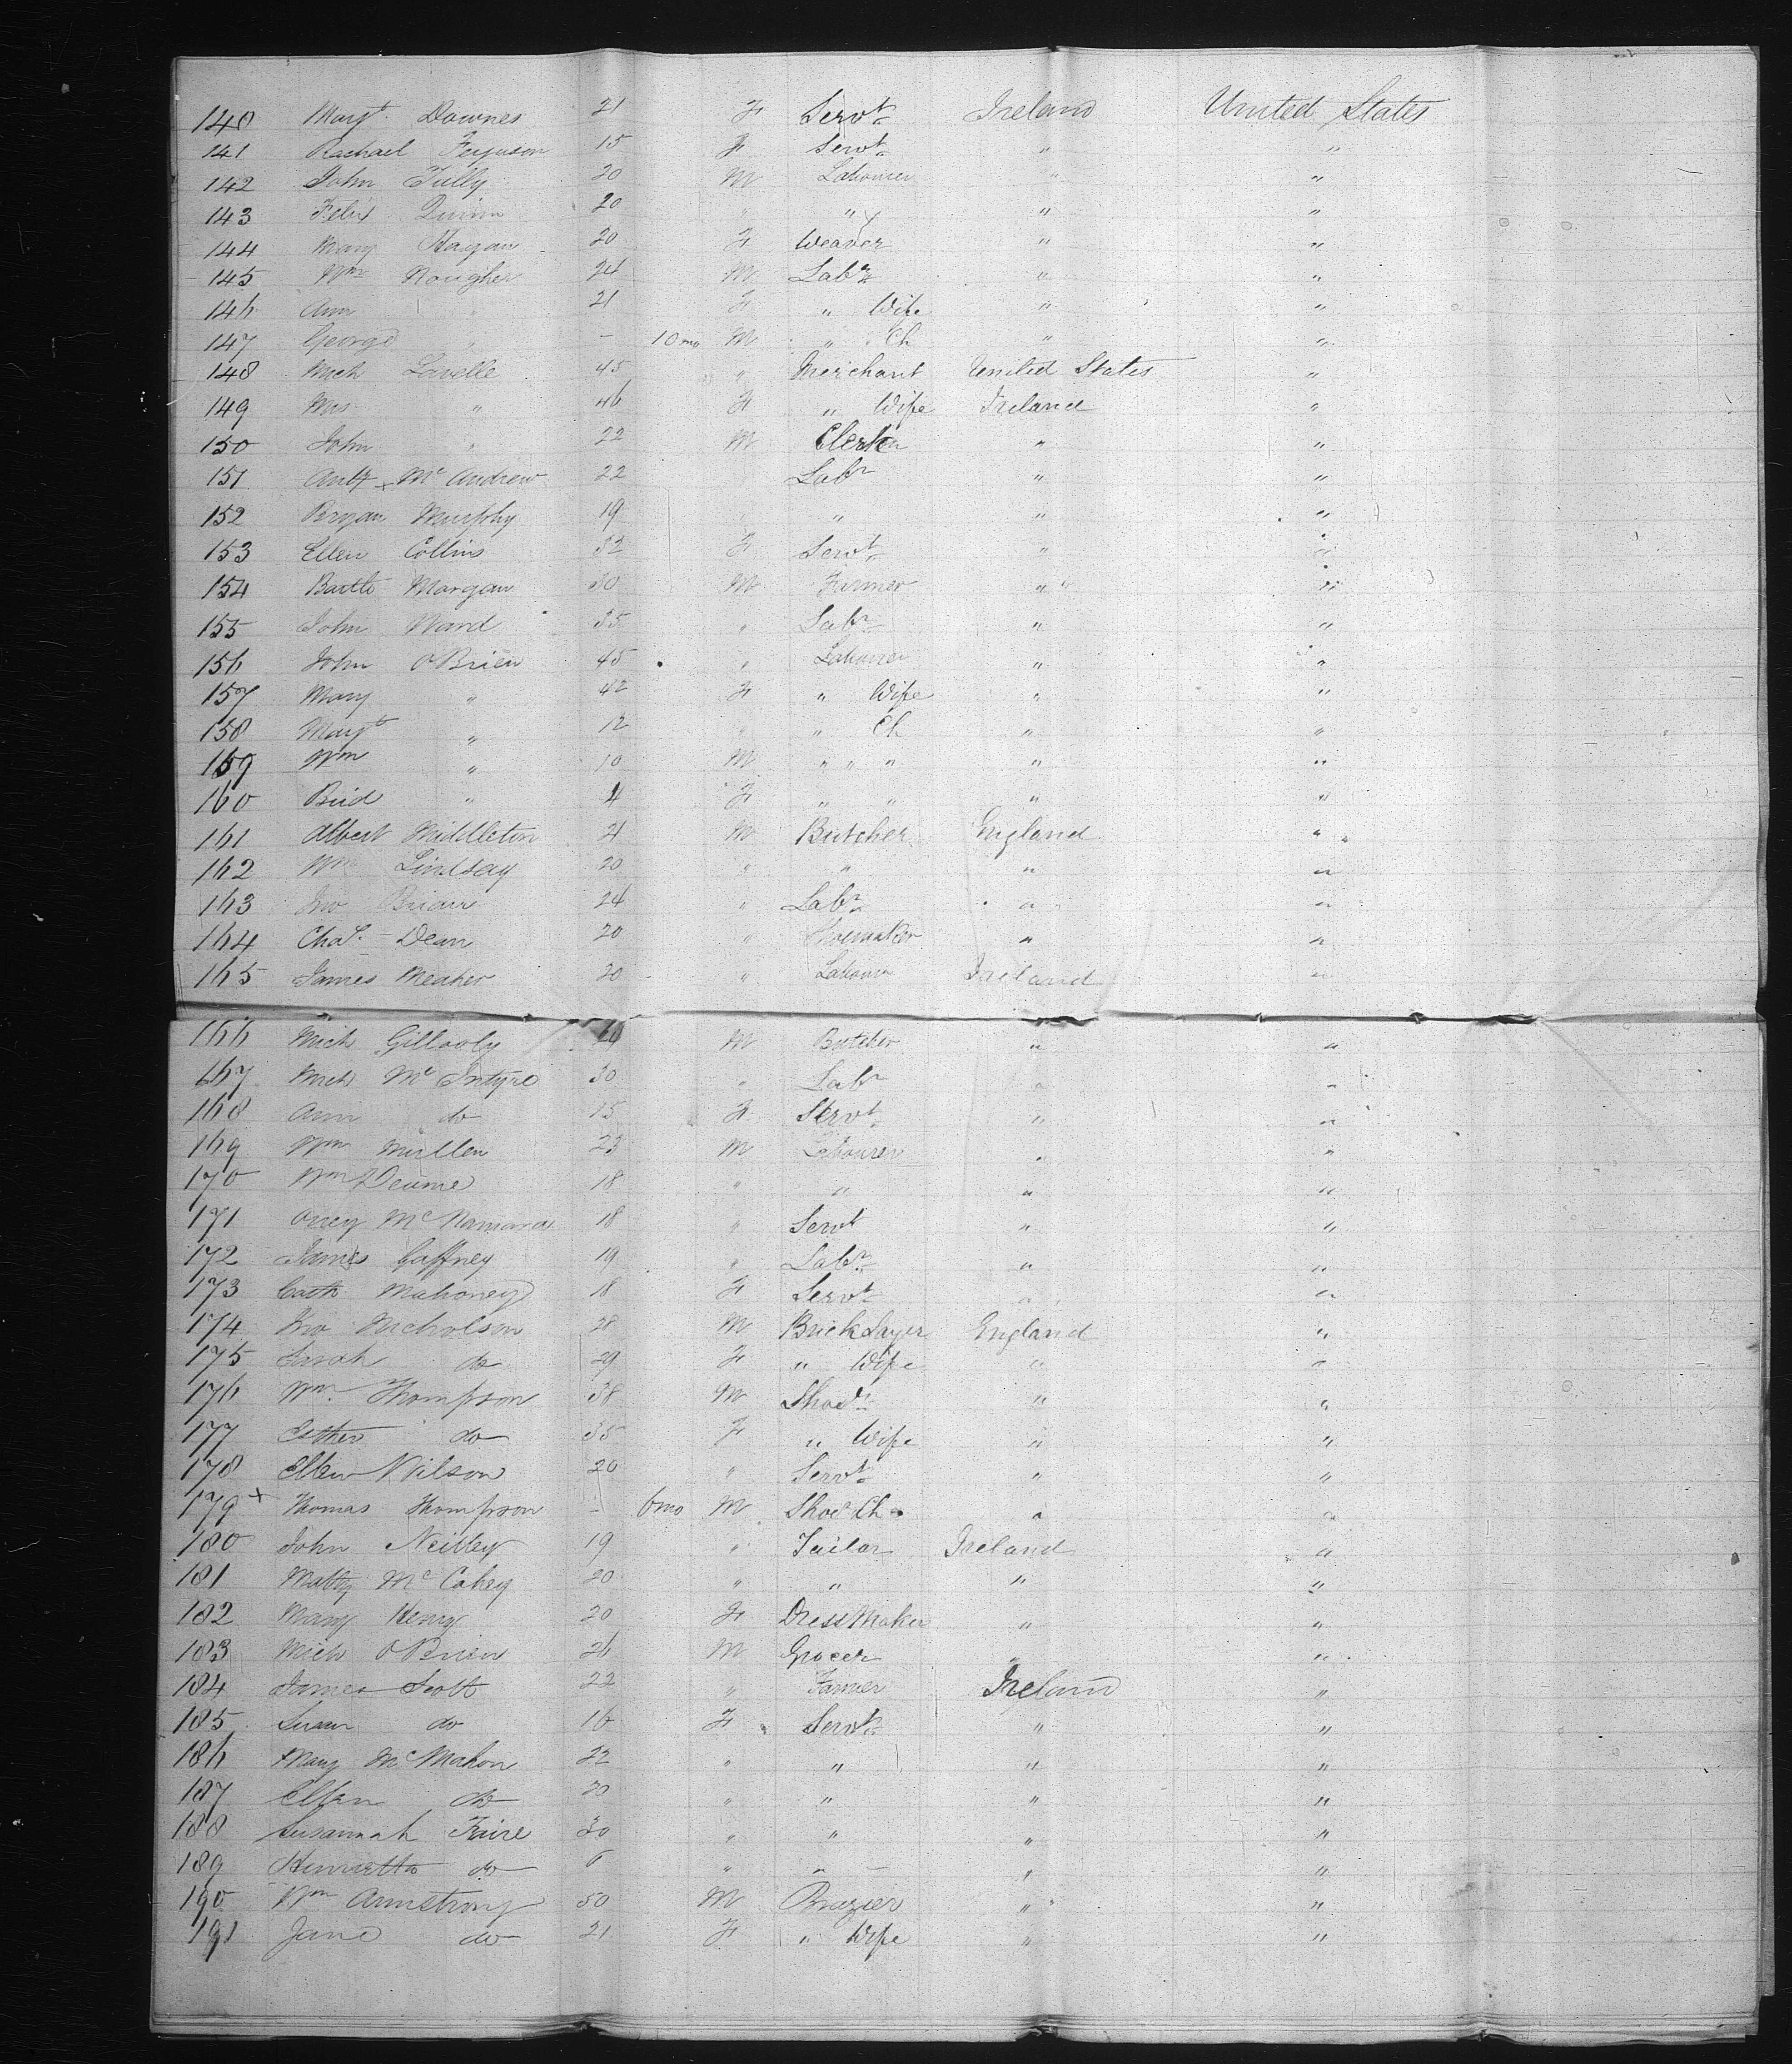 140 Margt. Downes 21 F Servt Ireland United States
141 Rachael Ferguson 15 F Servt " "
142 John Tully 20 M Labourer " "
143 Felix Quinn 20 " " " "
144 Mary Hagan 20 F Weaver " "
145 Wm Rougher 24 M Labr " "
146 Ann " 21 F " Wife " "
147 George " - 10 mo M " " Ch " "
148 Mich Lavelle 45 " Merchant United States "
149 Mrs " 46 F " Wife Ireland "
150 John " 22 M Clerk " "
151 McAndrew 22 Labr " "
152 Bryan Murphy 19 " " " "
153 Ellen Collins 32 F Servt " "
154 Bartle Morgan 30 M Farmer " "
155 John Ward 35 " Labr " "
156 John O'Brien 45 " Labourer " "
157 Mary " 42 F " Wife " "
158 Margt " 12 " " Ch " "
159 Wm " 10 M " " " " "
160 Brid " 4 F " " " "
161 Albert Middleton 21 M Butcher England "
162 Wm Lindsay 20 " " " "
163 Jno 24 " Labr " "
164 Chas. Dean 20 " Shoemaker " "
165 James Meaher 20 " Labourer Ireland "
166 Mich Gillooly M Butcher " "
167 Mich McIntyre 30 " Labr " "
168 Ann do 15 F Servt " "
169 Wm Mullen 23 M Labourer " "
170 Wm 18 " " " "
171 McNamara 18 " Servt " "
172 James Gaffney 19 " Labr " "
173 Cath Mahoney 18 F Servt " "
174 Jno Nicholson 28 M BrickLayer England "
175 Sarah do 29 F " Wife " "
176 Wm. Thompson 38 M " "
177 Esther do 35 F " Wife " "
178 Ellen Wilson 20 " Servt " "
179 x Thomas Thompson - 6mo M Ch " "
180 John Neilley 19 " Tailor Ireland "
181 Matty McCahey 20 " " " "
182 Mary Henry 20 F DressMaker " "
183 Mich O'Brien 26 M Grocer " "
184 James Scott 22 " Farmer Ireland "
185 Susan do 16 F Servt " "
186 Mary McMahon 22 " " " "
187 Ellen do 20 " " " "
188 Susannah Faire 30 " " " "
189 Henrietta do 6 " " - " "
190 Wm Armstrong 50 M Brazier " "
191 Jane do 21 F " Wife " "